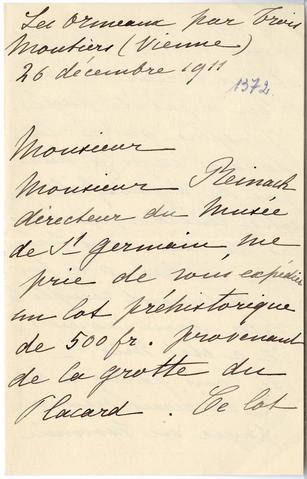 Les Ormeaux par Trois
Moutiers (Vienne)
26 décembre 1911
1372
Monsieur
Monsieur Reinach
directeur du Musée
de St Germain me
prie de vous expédier
un lot préhistorique
de 500 fr. provenant
de la grotte du
Placard. Ce lot